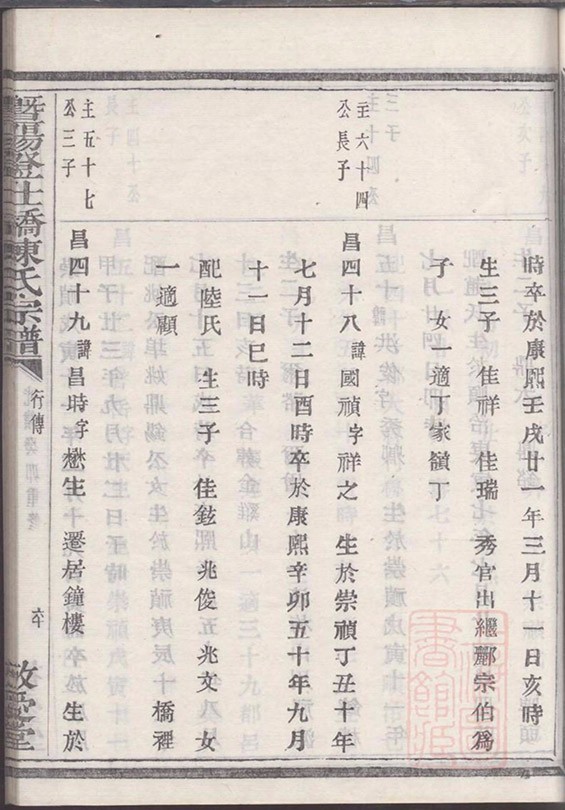 時卒於康熙壬戌廿一年三月十一日亥時
生三子 佳祥 佳瑞 秀官出繼酈宗伯爲
子 女一適丁家嶺丁
主六十四
公長子
昌四十八諱國禎字祥之 生於崇禎丁丑十年
七月十二日酉時卒於康熙辛卯五十年九月
十一日巳時
配陸氏 生三子 佳鉉 兆俊 兆文 女
一適顧
主五十七
公三子
昌四十九諱昌時字懋生 遷居鐘樓 生於
暨陽登仕橋陳氏宗譜
行傳
敬愛堂